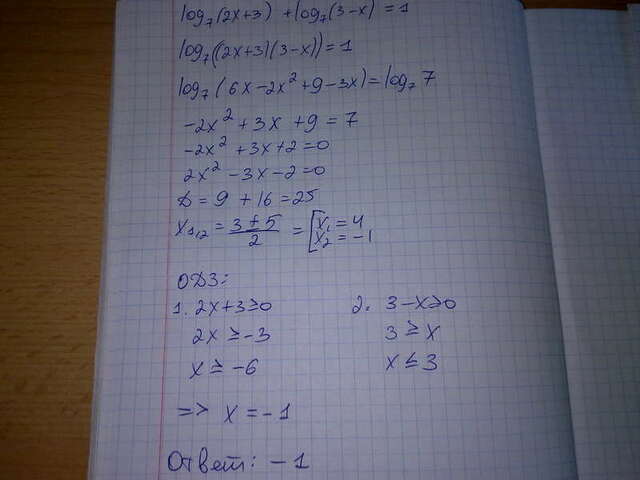 log₇(2x+3) + log₇(3-x) = 1
log₇((2x+3)(3-x)) = 1
log₇(6x-2x²+9-3x) = log₇ 7
-2x² + 3x + 9 = 7
-2x² + 3x + 2 = 0
2x² - 3x - 2 = 0
D = 9 + 16 = 25
x₁,₂ = (3 ± 5)/2 = [x₁ = 4
x₂ = -1
ОДЗ:
1. 2x+3≥0 2. 3-x≥0
2x ≥ -3 3 ≥ x
x ≥ -6 x ≤ 3
=> x = -1
Ответ: -1